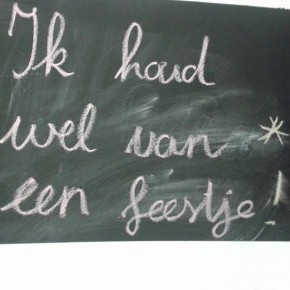 Ik houd
wel van *
een feestje!